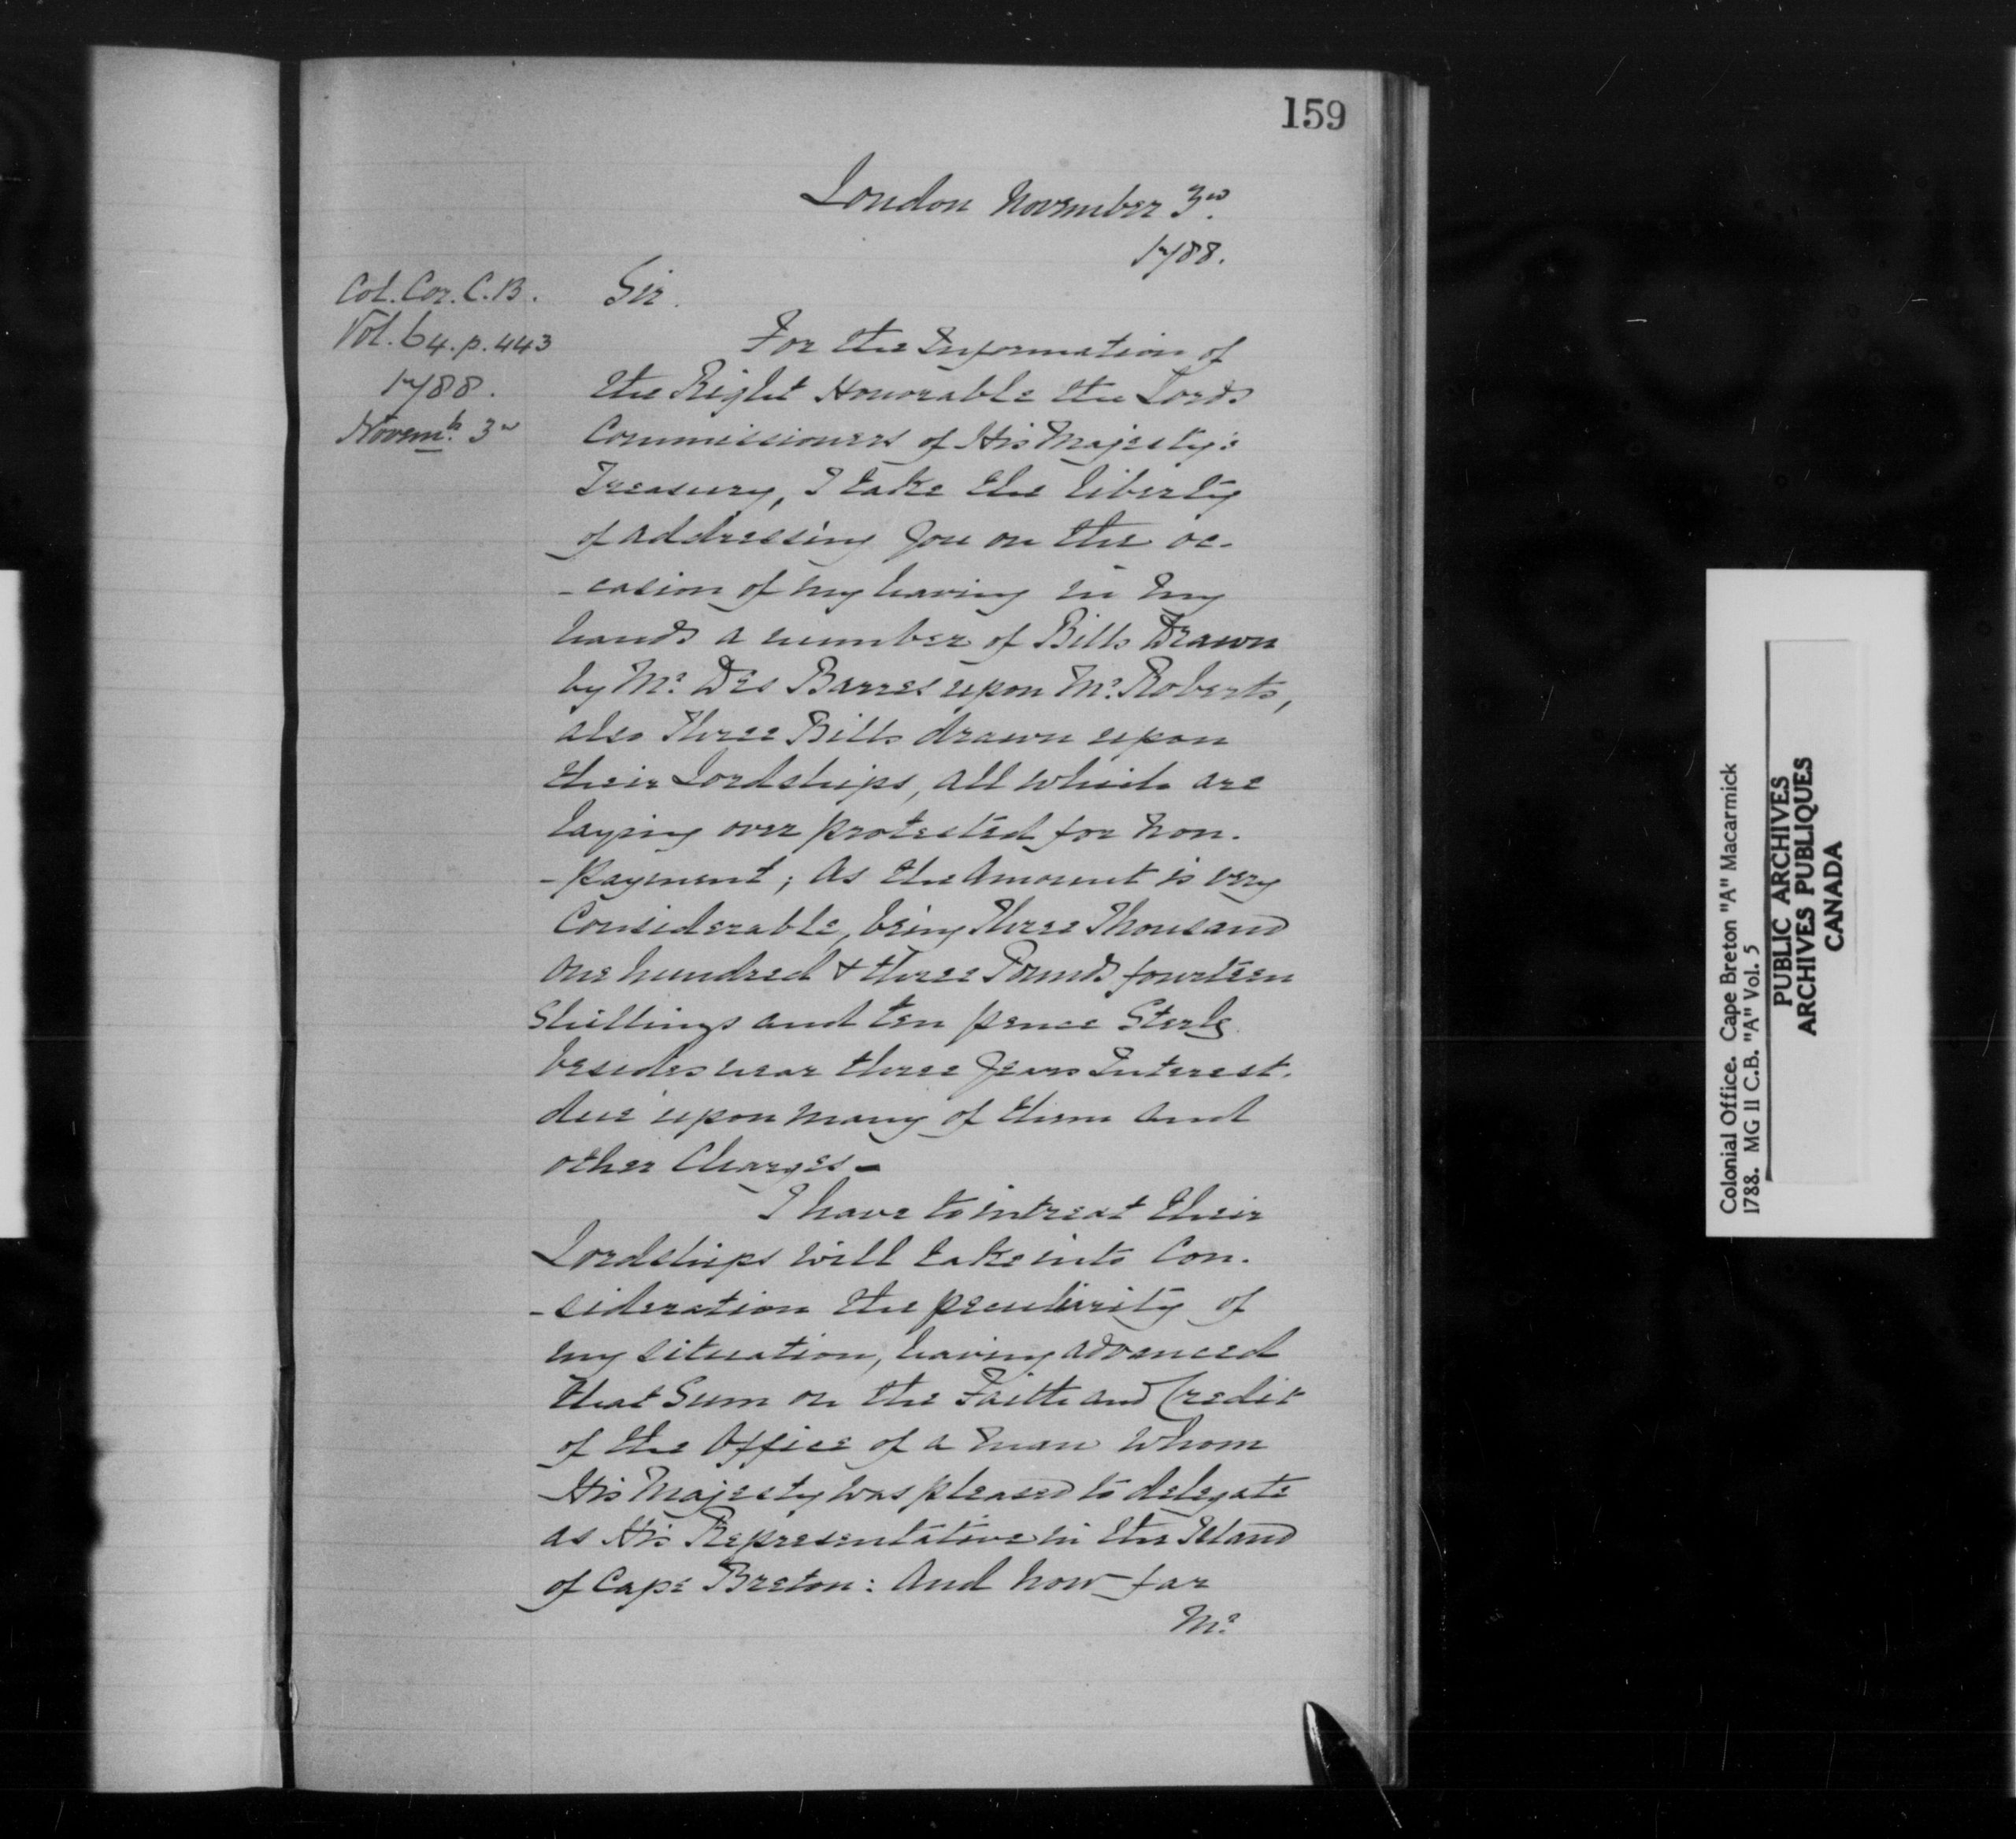 159
London November 3rd.
1788.
Col. Cor. C.B.
Vol. 64. p. 443
1788.
Novemb. 3rd
Sir.
For the Information of
the Right Honorable the Lords
Commissioners of His Majesty's
Treasury, I take the liberty
of addressing you on the oc-
-casion of my having in my
hands a number of Bills Drawn
by Mr. Des Barres upon Mr. Roberts,
also Three Bills drawn upon
their Lordships, all which are
laying over protested for non.
-Payment; as the Amount is very
Considerable, being Three Thousand
One hundred & three Pounds fourteen
Shillings and ten pence Sterlg
besides near three Years Interest.
due upon many of them and
other Charges -
I have to intreat their
Lordships will take into Con.
-sideration the peculiarity of
my situation, having advanced
that Sum on the Faith and Credit
of the Office of a man whom
His Majesty was pleased to delegate
as His Representative in the Island
of Cape Breton: And how far
Mr.
Colonial Office. Cape Breton "A" Macarmick
1788. MG 11 C.B. "A" Vol. 5
PUBLIC ARCHIVES
ARCHIVES PUBLIQUES
CANADA